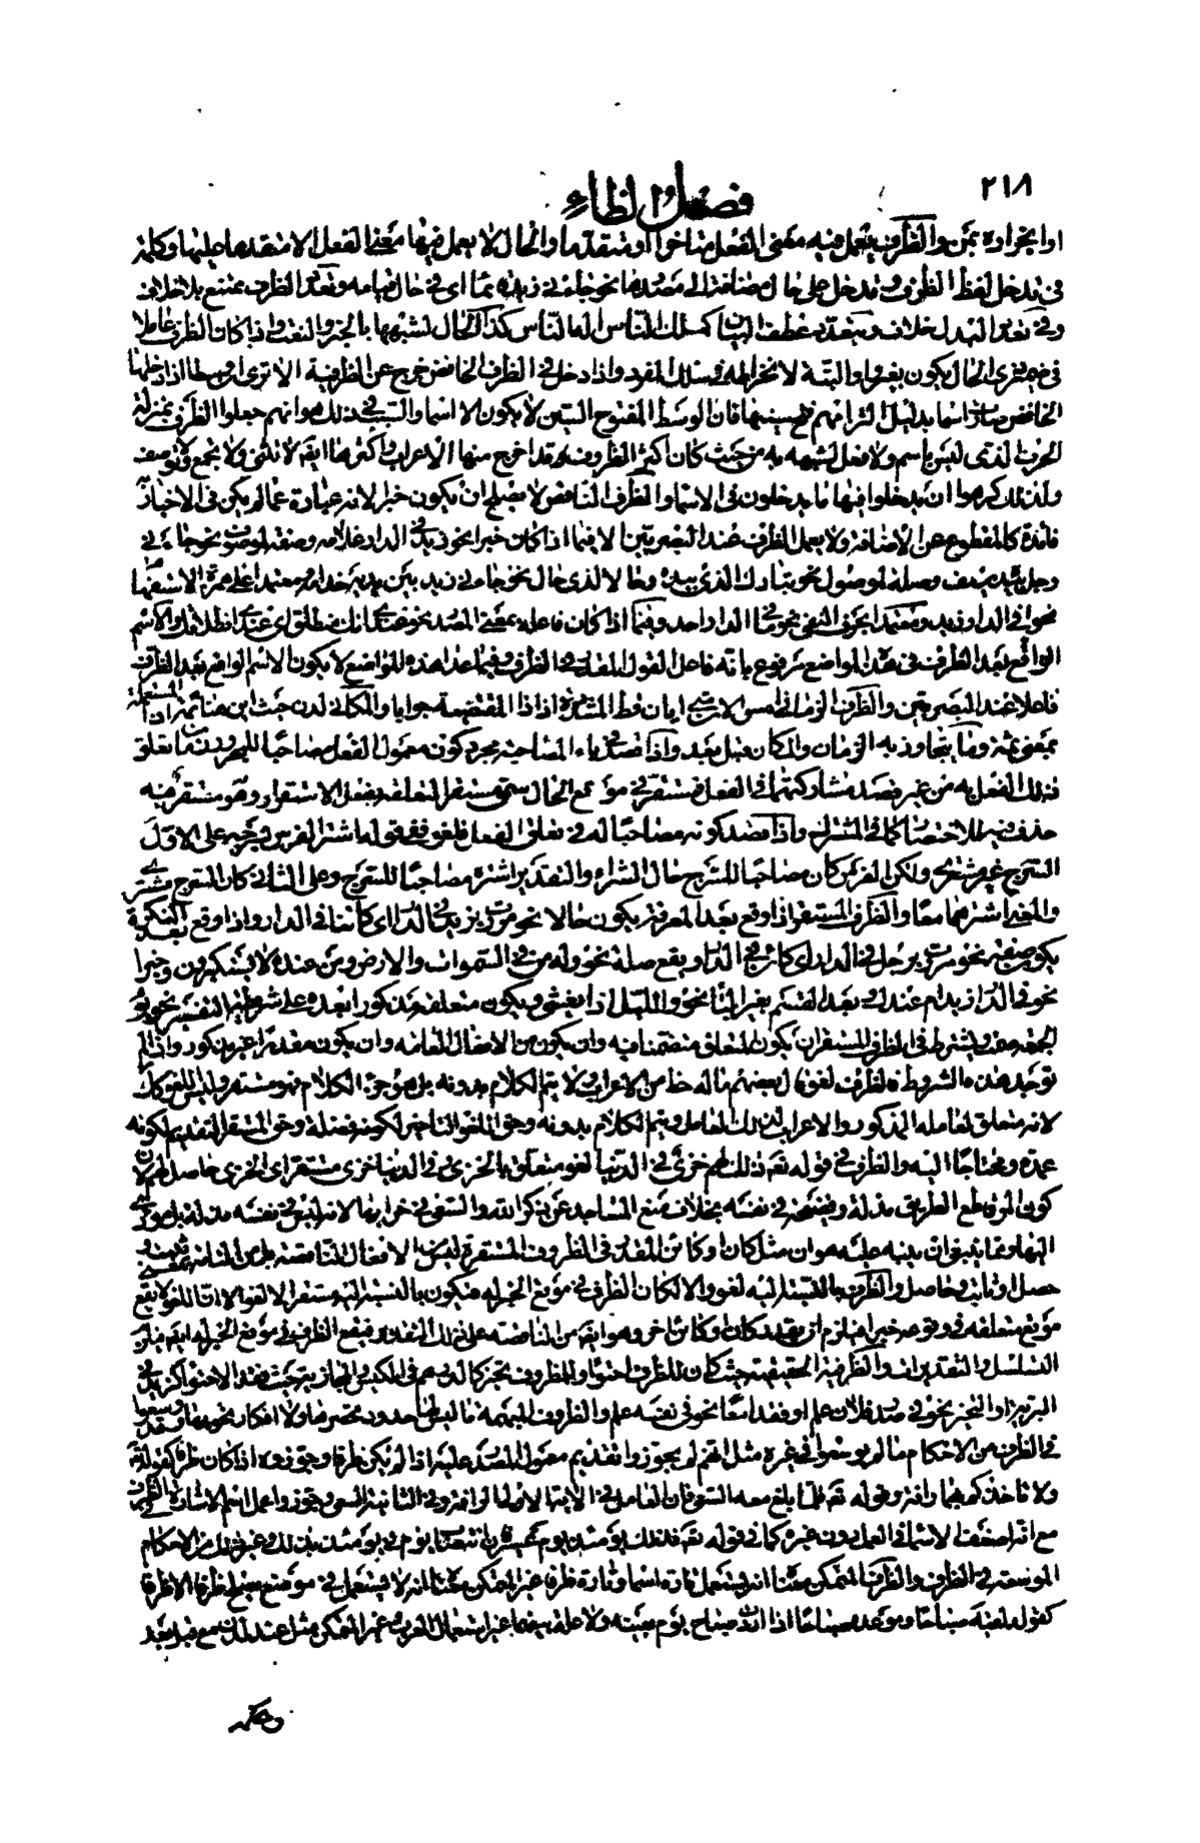 ٢١٨
فصل الظاء
او ابخواره بمن والظرف يعمل فيه معنى الفعل متاخرا او متقدما والحال لا يعمل فيها معنى الفعل الا متقدما عليها وكلمة
فى تدخل لفظ الظرف وتدخل على حال مضافة الى مصدرها نحو جاءنى زيد اى فى حال قيامه وتعدد الظرف ممتنع بلا خلاف
وفى تعدد البدل خلاف عطف البيان كملك الناس اله الناس كذا الحال لشبهها بالخبر والنعت واذا كان الظرف عاملا
فى ضمير ذى الحال يكون بغير واو البتة لانخراطه فى سلك المفرد واذا دخل فى الظرف الخافض خرج عن الظرفية الا ترى ان وسطا اذا دخلها
الخافض صار اسما بدليل التزامهم فتح سينها فان الوسط المفتوح السين لا يكون الا اسما والسبب فى ذلك هو انهم جعلوا الظرف بمنزلة
الحرف الذى ليس باسم ولا فعل لشبهه به من حيث كان اكثر الظروف قد اخرج منها الاعراب واكثرها ايضا لا تثنى ولا تجمع ولا توصف
ولذلك كرهوا ان يدخلوا فيها ما يدخلون فى الاسماء والظرف الناقص لا يصلح ان يكون خبرا لانه عبارة عما لم يكن فى الاخبار به
فائدة كالمقطوع عن الاضافة ولا يعمل الظرف عند البصريين الا فيما اذا كان خبرا نحو زيد فى الدار غلامه وصفة لموصوف نحو جاءنى
رجل وصلة لموصول نحو تبارك الذى بيده وحالا لذى حال نحو جاءنى زيد بين يديه خدامه ومعتمدا على همزة الاستفهام
نحو افى الدار زيد ومعتمدا بحرف النفى نحو ما فى الدار احد وفيما اذا كان فاعله بمعنى المصدر نحو عندى انك منطلق اى عندى انطلاقك والاسم
الواقع بعد الظرف فى هذه المواضع مرفوع بانه فاعل لقول المقدر فى الظرف وفيما عدا هذه المواضع لا يكون الاسم الواقع بعد الظرف
فاعلا عند البصريين والظرف الزمانى امس الان متى ايان قط المشددة اذ اذا المقتضية جوابا والمكانى لدن حيث اين هنا ثم اذا المستعملة
بمعنى ثم وما يتجاوز به الزمان والمكان قبل بعد واذا قصد فى باء المصاحبة مجرد كون معمول الفعل مصاحبا للمجرور زمان تعلق
ذلك الفعل به من غير قصد مشاركتهما فى الفعل فمستقر فى موضع الحال سمى مستقرا لتعلقه بفعل الاستقرار وهو مستقر فيه
حذف فيه للاختصار كما فى المشترك واذا قصد كونه مصاحبا له فى تعلق الفعل فلغو ففى قوله اشتر الفرس بسرجه على الاول
السرج غير مشترى ولكن الفرس كان مصاحبا للسرج حال الشراء والتقدير اشتره مصاحبا للسرج وعلى الثانى كان السرج مشترى
والمعنى اشترهما معا والظرف المستقر اذا وقع بعد المعرفة يكون حالا نحو مررت بزيد فى الدار اى كائنا فى الدار واذا وقع بعد النكرة
يكون صفة نحو مررت برجل فى الدار اى كائن فى الدار ويقع صلة نحو وله من فى السموات والارض ومن عنده لا يستكبرون وخبرا
نحو فى الدار زيد ام عندك وبعد القسم بغير الباء نحو والليل اذا يغشى ويكون متعلقه مذكورا بعده على شريطة التفسير نحو يوم
الجمعة صمت ويشترط فى الظرف المستقر ان يكون المتعلق متضمنا فيه وان يكون من الافعال العامة وان يكون مقدرا غير مذكور واذا لم
توجد هذه الشروط فالظرف لغو قال بعضهم ما له حظ من الاعراب ولا يتم الكلام بدونه بل هو جزء الكلام فهو مستقر وليس اللغو كذلك
لانه متعلق لعامله المذكور والاعراب لذلك العامل ويتم الكلام بدونه وحق اللغو التاخير لكونه فضلة وحق المستقر التقديم لكونه
عمدة ومحتاجا اليه والظرف فى قوله تعالى ذلك لهم خزى فى الدنيا لغو متعلق بالخزى وفى الدنيا خزى مستقر اى الخزى حاصل لهم لان
كون المرء قطع الطريق مذلة وفضيحة فى نفسه بخلاف منع المساجد عن ذكر الله والسعى فى خرابها لانه ليس فى نفسه مذلة بل مؤد
اليها ومما ينبغى ان ينبه عليه هو ان مثل كان او كائن المقدر فى الظروف المستقرة ليس من الافعال الناقصة بل من التامة بمعنى ثبت
حصل او ثابت وحاصل والظرف بالنسبة اليه لغو والا لكان الظرف فى موضع الخبر له فيكون بالنسبة اليه مستقرا لا لغوا لان اللغو لا يقع
موقع متعلقه فى وقوعه خبرا فيلزم ان يقدر كان او كائن اخر وهو ايضا من الناقصة على ذلك التقدير فيقع الظرف فى موضع الخبر له ايضا فيلزم
التسلسل والتقديرات والظرفية الحقيقية حيث كان للظرف احتواء وللمظروف تحيز كالدرهم فى الكيس والمجازية حيث فقد الاحتواء كزيد فى
البرية او التحيز نحو فى صدر فلان علم او فقدا معا نحو فى نفسه علم والظروف المبهمة ما ليس لها حدود تحصرها ولا اقطار تحويها وقد وسعوا
فى الظرف من الاحكام ما لم يوسعوا فى غيره مثل انهم لم يجوزوا تقديم معمول المصدر عليه اذا لم يكن ظرفا وجوزوه اذا كان ظرفا كقوله تعالى
ولا تاخذكم بهما رافة وقوله تعالى فلما بلغ معه السعى فان العامل فى الاية الاولى الرافة وفى الثانية السعى وجوزوا عمل اسم الاشارة فى الظرف
مع انه اضعف الاسماء فى العمل دون غيره كما فى قوله تعالى فذلك يومئذ يوم عسير فانتصب يوم فى يومئذ بذلك وغير ذلك من الاحكام
الموسعة فى الظرف والظرف المتمكن معناه انه يستعمل تارة اسما وتارة ظرفا غير المتمكن معناه انه لا يستعمل فى موضع يصلح ظرفا الا ظرفا
كقوله لقيته صباحا وموعده صباحا اذا اردت صباح يوم بعينه ولا علة بينهما غير استعمال العرب وغير المتمكن مثل عند لدن مع قبل بعد
وحكمه